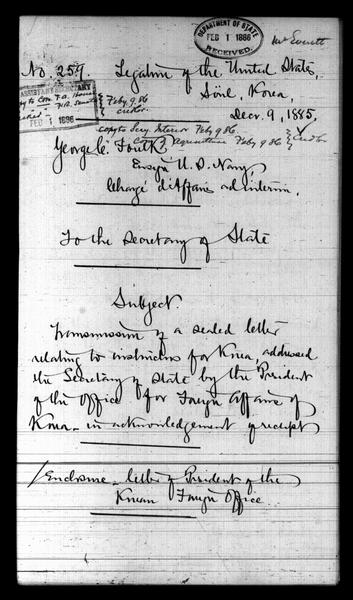 DEPARTMENT OF STATE
FEB 1 1886
RECEIVED.
Mr Everett
No. 259.
Legation of the United States,
Söul, Korea,
Dec. 9, 1885.
ASSISTANT SECRETARY
FEB 1 1886
Feby 9. 86
copy to Secy. Interior Feby 9 86.
Agriculture Feby 9 86
George C. Foulk
Ensign U.S. Navy,
Chargé d'Affaires ad interim.
To the Secretary of State
Subject.
Transmission of a sealed letter
relating to instructors for Korea, addressed
the Secretary of State by the President
of the Office for Foreign Affairs of
Korea - in acknowledgement of receipt
1 Enclosure - letter of President of the
Korean Foreign Office.